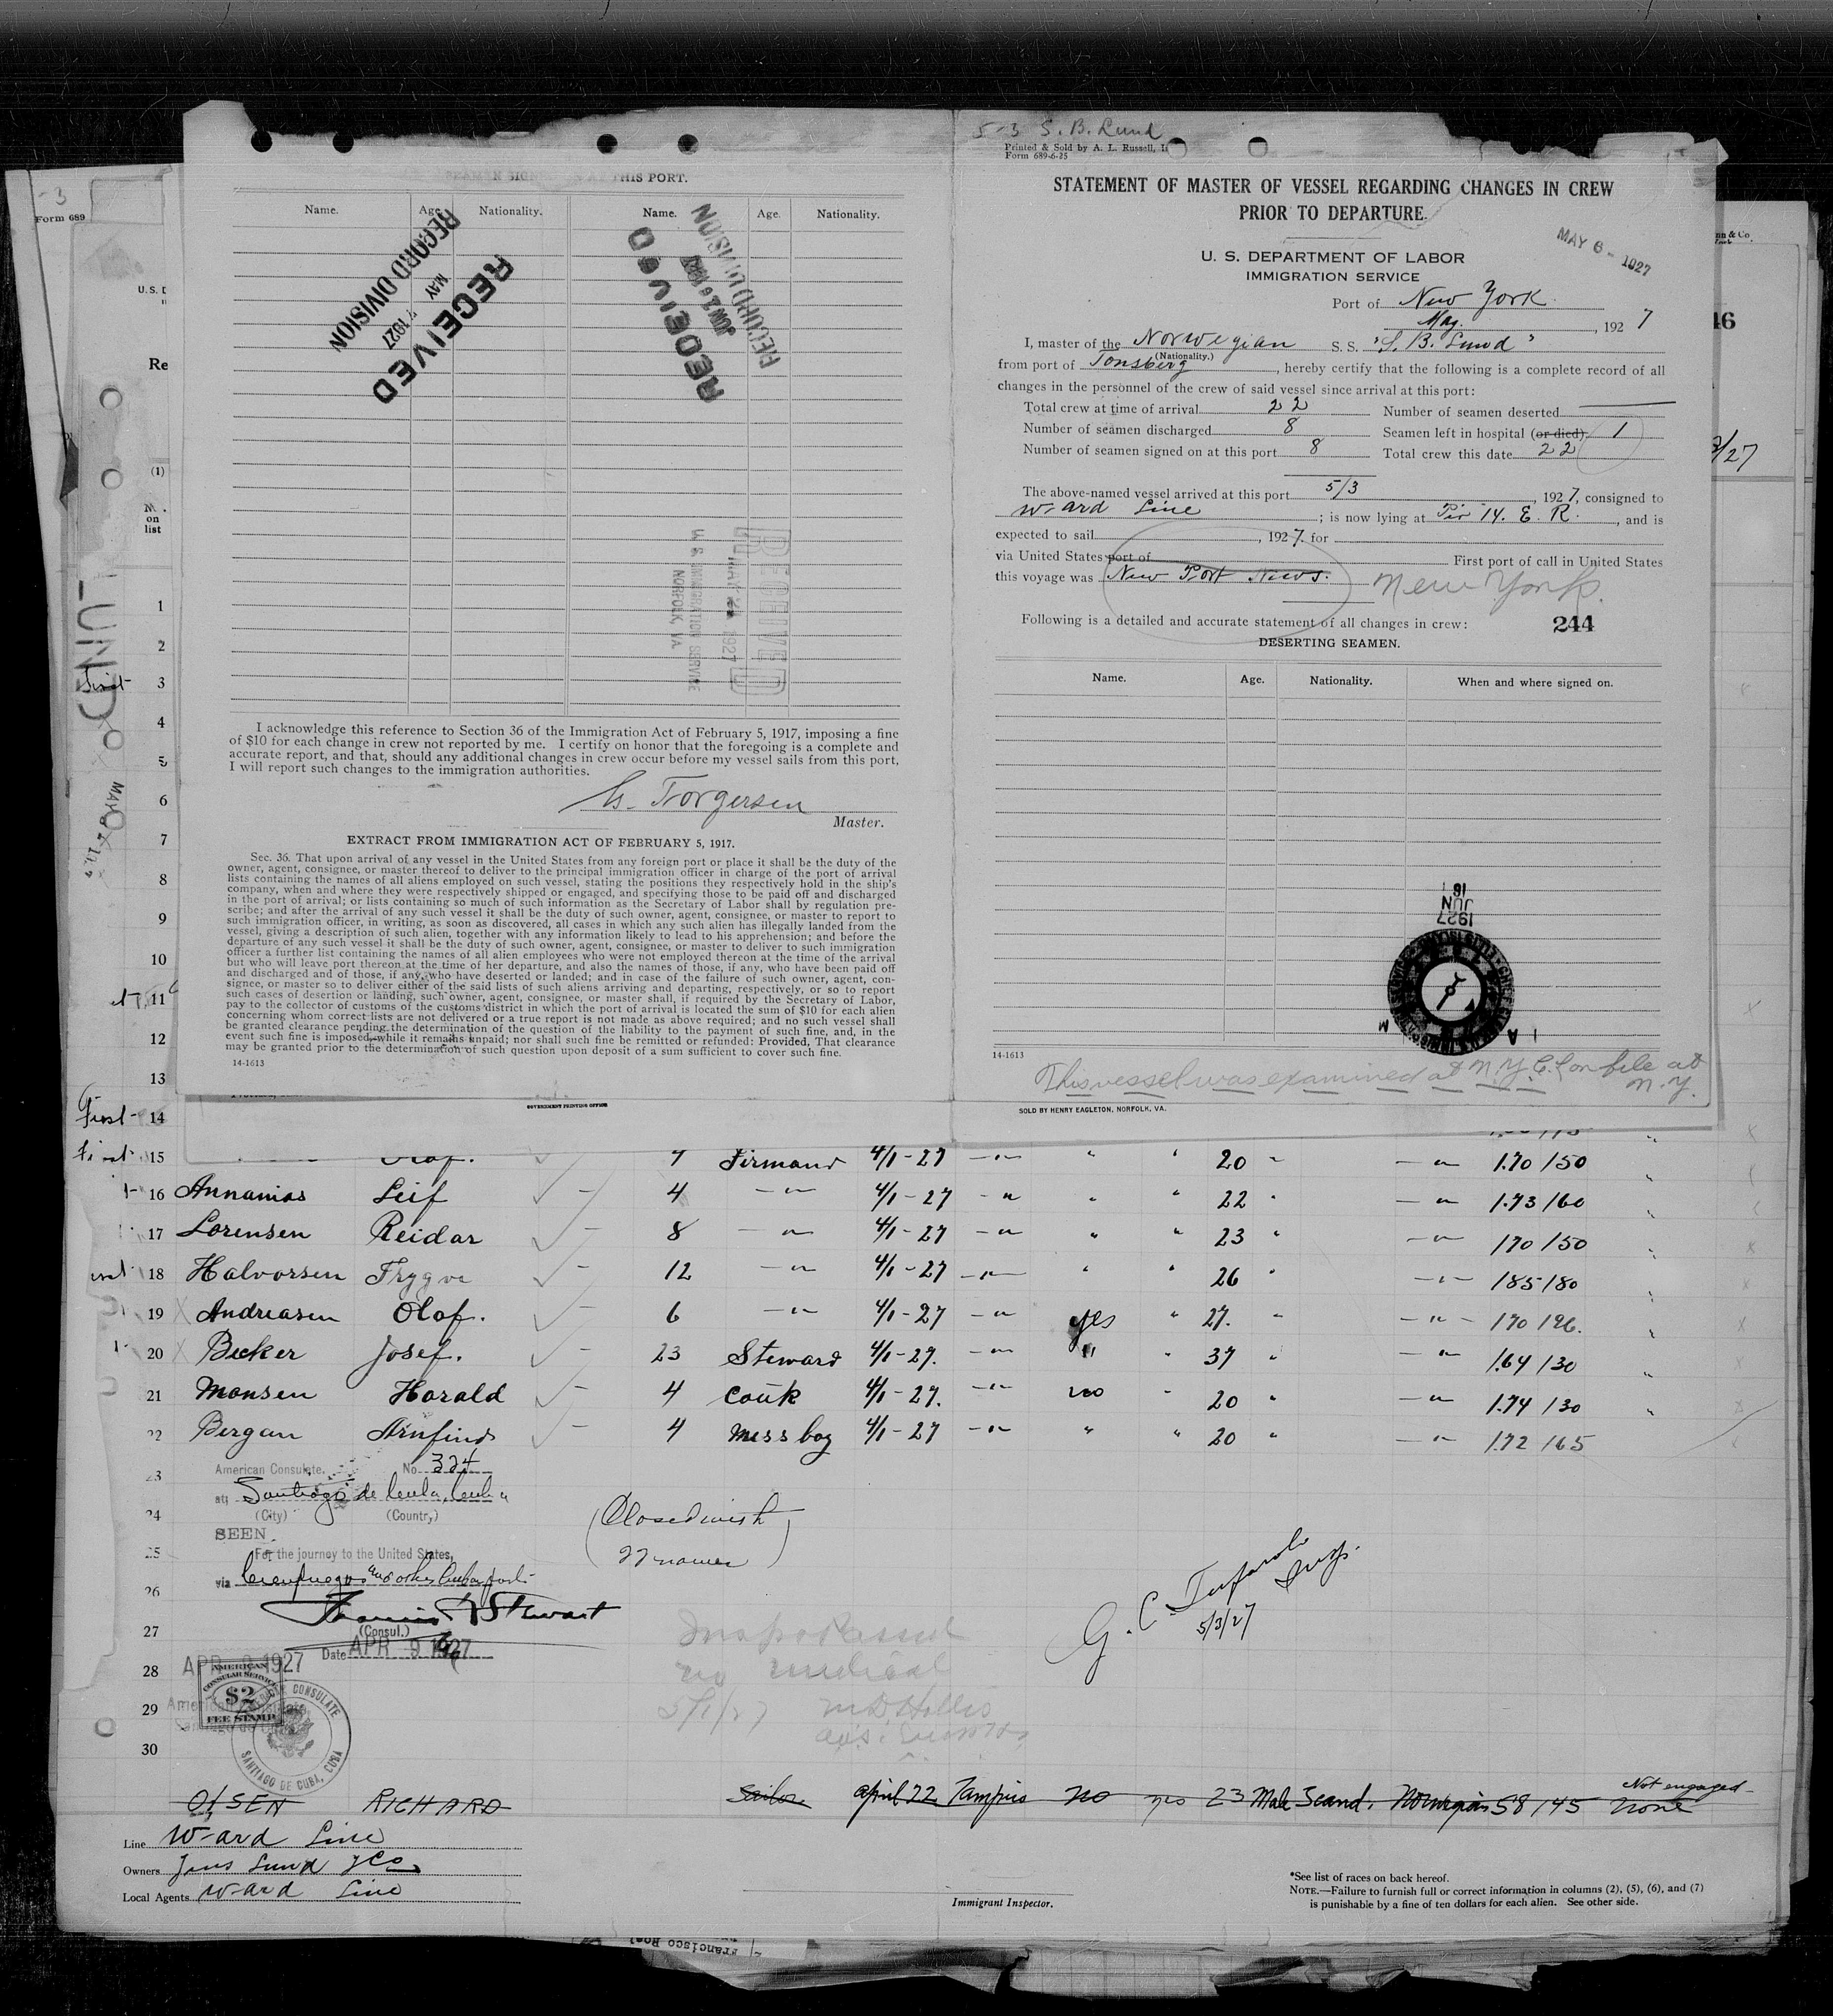 5-3 S. B. Lund
Printed & Sold by A. L. Russell,
Form 689-6-25
STATEMENT OF MASTER OF VESSEL REGARDING CHANGES IN CREW
PRIOR TO DEPARTURE.
MAY 6 - 1927
U. S. DEPARTMENT OF LABOR
IMMIGRATION SERVICE
Port of New York
May , 192 7
I, master of the Norwegian S. S. "S. B. Lund"
(Nationality.)
from port of Tonsberg , hereby certify that the following is a complete record of all
changes in the personnel of the crew of said vessel since arrival at this port:
Total crew at time of arrival 22 Number of seamen deserted
Number of seamen discharged 8 Seamen left in hospital (or died) 1
Number of seamen signed on at this port 8 Total crew this date 22
The above-named vessel arrived at this port 5/3 , 192 7, consigned to
Ward Line ; is now lying at Pier 14. E. R. , and is
expected to sail , 192 7. for
via United States port of First port of call in United States
this voyage was New Port News. New York.
Following is a detailed and accurate statement of all changes in crew: 244
DESERTING SEAMEN.
Name. Age. Nationality. When and where signed on.
1927
JUN
14-1613
This vessel was examined at N.Y. C.L. on file at
N.Y.
SOLD BY HENRY EAGLETON, NORFOLK, VA.
THIS PORT.
Name. Age. Nationality. Name. Age. Nationality.
RECORD DIVISION
MAY 7 1927
RECEIVED
RECORD DIVISION
RECEIVED
RECEIVED
1927
U. S. IMMIGRATION SERVICE
NORFOLK, VA.
I acknowledge this reference to Section 36 of the Immigration Act of February 5, 1917, imposing a fine
of $10 for each change in crew not reported by me. I certify on honor that the foregoing is a complete and
accurate report, and that, should any additional changes in crew occur before my vessel sails from this port,
I will report such changes to the immigration authorities.
G. Torgersen
Master.
EXTRACT FROM IMMIGRATION ACT OF FEBRUARY 5, 1917.
Sec. 36. That upon arrival of any vessel in the United States from any foreign port or place it shall be the duty of the
owner, agent, consignee, or master thereof to deliver to the principal immigration officer in charge of the port of arrival
lists containing the names of all aliens employed on such vessel, stating the positions they respectively hold in the ship's
company, when and where they were respectively shipped or engaged, and specifying those to be paid off and discharged
in the port of arrival; or lists containing so much of such information as the Secretary of Labor shall by regulation pre-
scribe; and after the arrival of any such vessel it shall be the duty of such owner, agent, consignee, or master to report to
such immigration officer, in writing, as soon as discovered, all cases in which any such alien has illegally landed from the
vessel, giving a description of such alien, together with any information likely to lead to his apprehension; and before the
departure of any such vessel it shall be the duty of such owner, agent, consignee, or master to deliver to such immigration
officer a further list containing the names of all alien employees who were not employed thereon at the time of the arrival
but who will leave port thereon at the time of her departure, and also the names of those, if any, who have been paid off
and discharged and of those, if any, who have deserted or landed; and in case of the failure of such owner, agent, con-
signee, or master so to deliver either of the said lists of such aliens arriving and departing, respectively, or so to report
such cases of desertion or landing, such owner, agent, consignee, or master shall, if required by the Secretary of Labor,
pay to the collector of customs of the customs district in which the port of arrival is located the sum of $10 for each alien
concerning whom correct lists are not delivered or a true report is not made as above required; and no such vessel shall
be granted clearance pending the determination of the question of the liability to the payment of such fine, and, in the
event such fine is imposed, while it remains unpaid; nor shall such fine be remitted or refunded: Provided, That clearance
may be granted prior to the determination of such question upon deposit of a sum sufficient to cover such fine.
14-1613
GOVERNMENT PRINTING OFFICE
Form 689
U. S. D
Re
(1)
on
list
1
2
First 3
4
5
6
7
8
9
10
11
12
13
First 14
First 15 Olaf. 7 Firmand 4/1-27 -"- " " 20 " -"- 1.70/50
16 Annanias Leif 4 -"- 4/1-27 -"- " " 22 " -"- 1.73/60
17 Lorensen Reidar 8 -"- 4/1-27 -"- " " 23 " -"- 170/50
18 Halvorsen Trygve 12 -"- 4/1-27 -"- " " 26 " -"- 185/80
19 Andreasen Olaf. 6 -"- 4/1-27 -"- yes " 27. " -"- 170/96.
20 Becker Josef. 23 Steward 4/1-27. -"- " " 37 " -"- 1.64/30
21 Monsen Harald 4 Cook 4/1-27. -"- no " 20 " -"- 1.74/30
22 Bergan Arnfind 4 Mess boy 4/1-27 -"- " " 20 " -"- 1.72/65
23
24
25
26
27
28
29
30
American Consulate. No 324
at Santiago de Cuba, Cuba
(City) (Country)
SEEN
For the journey to the United States,
via Cienfuegos and other Cuban ports
(Consul.)
Date APR 9 1927
APR 9 1927
AMERICAN
CONSULAR SERVICE
$2
FEE STAMP
AMERICAN CONSULATE
SANTIAGO DE CUBA, CUBA
(Closed with
22 names)
5/3/27
OLSEN RICHARD Sailor April 22 Tampico no yes 23 Male Scand. Norwegian 58/145 None
Not engaged
Line Ward Line
Owners Jens Lund & Co
Local Agents Ward Line
Immigrant Inspector.
*See list of races on back hereof.
NOTE.—Failure to furnish full or correct information in columns (2), (5), (6), and (7)
is punishable by a fine of ten dollars for each alien. See other side.